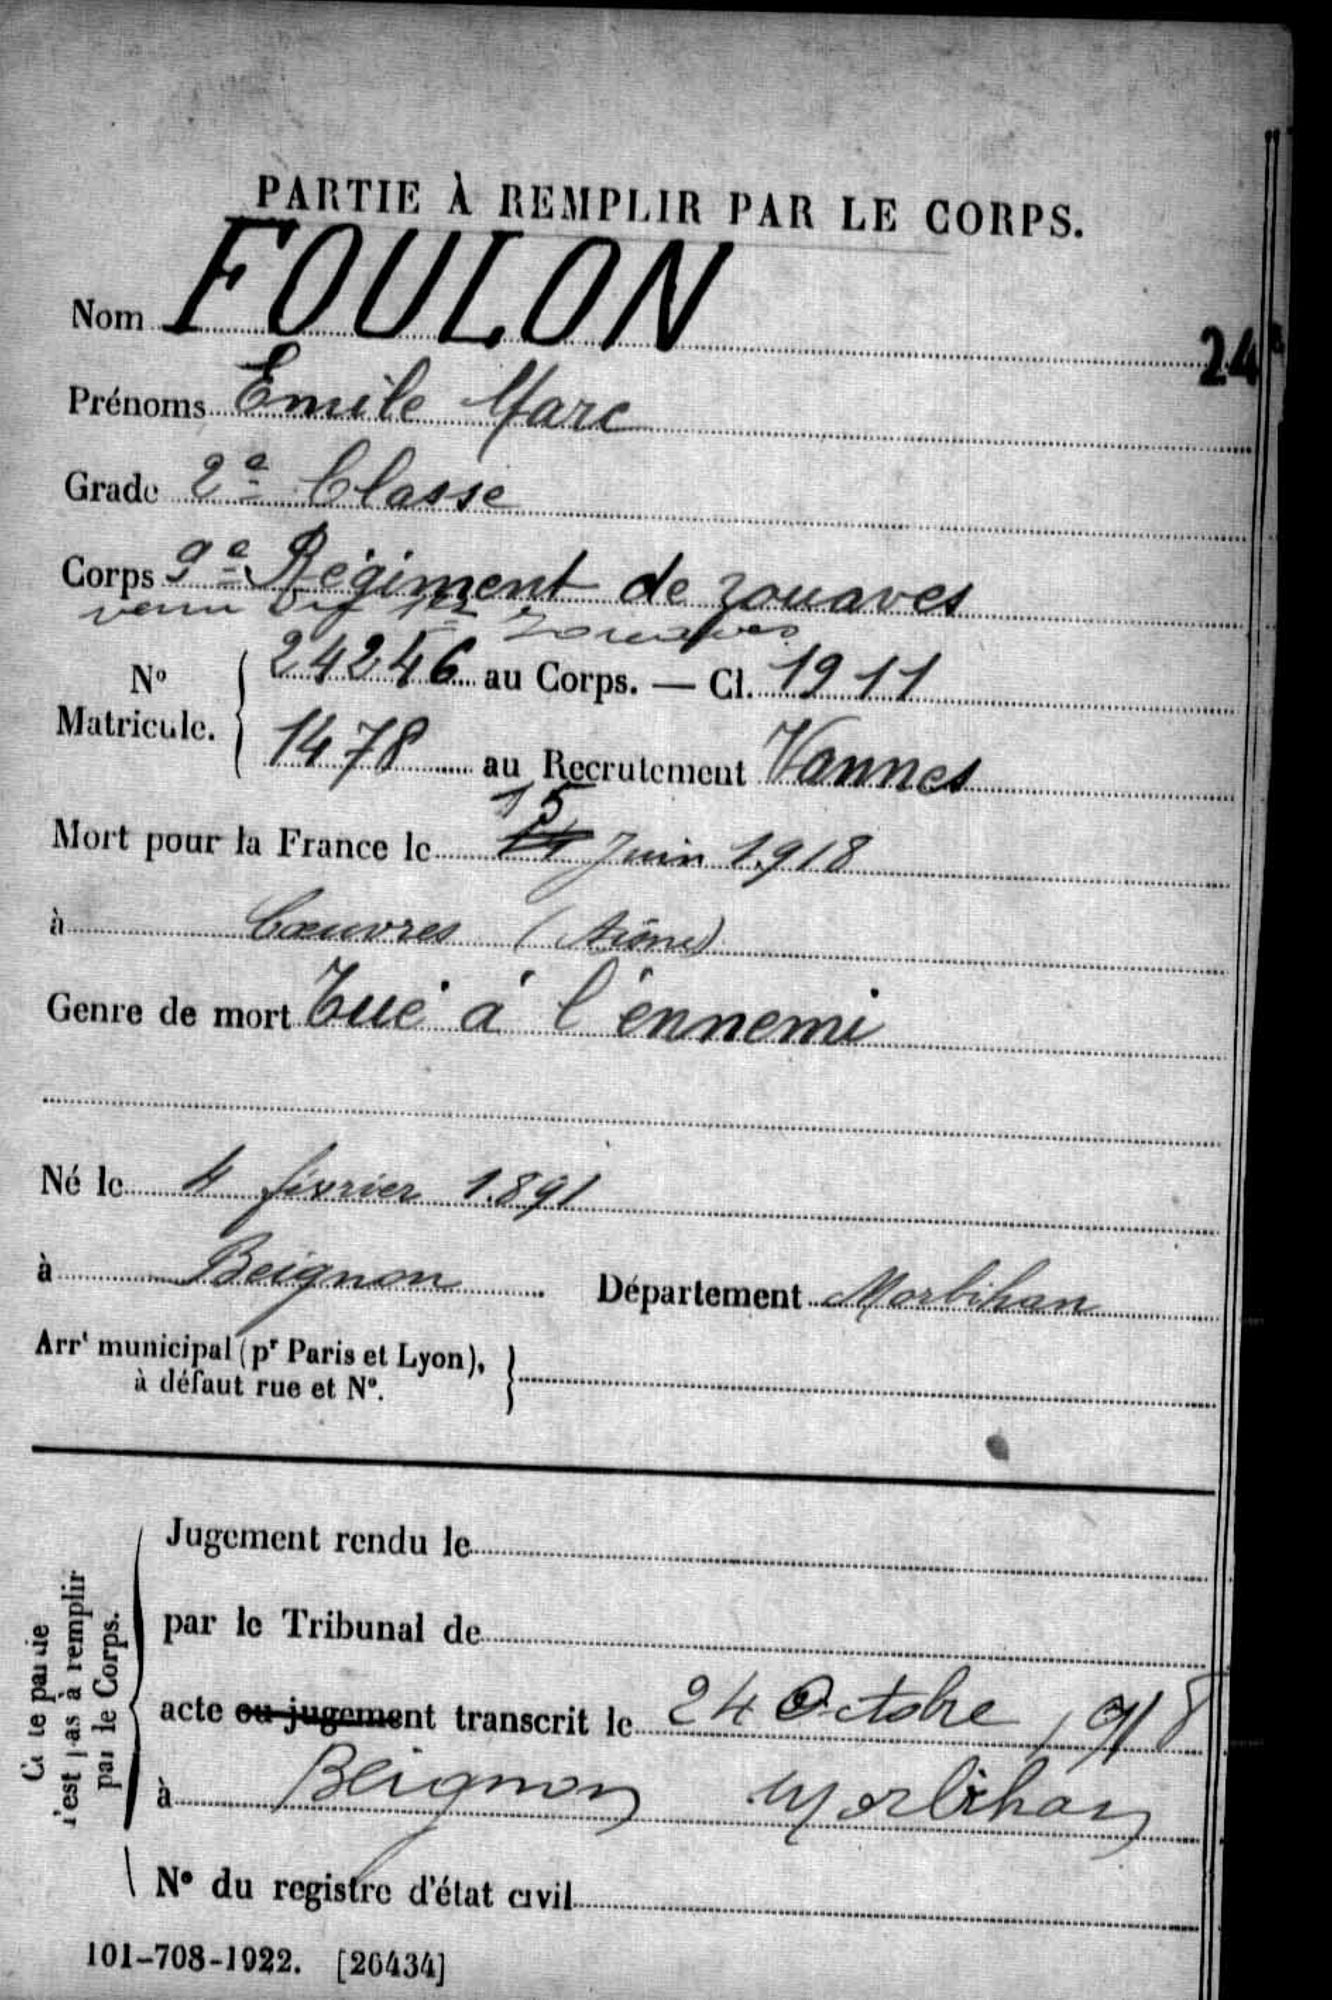 PARTIE À REMPLIR PAR LE CORPS.
Nom FOULON
24
Prénoms Emile Marc
Grade 2e Classe
Corps 9e Régiment de zouaves
venu du zouaves
No Matricule. 24246 au Corps. — Cl. 1911
1478 au Recrutement Vannes
15
Mort pour la France le 14 Juin 1918
à Cœuvres (Aisne)
Genre de mort Tué à l'ennemi
Né le 4 février 1891
à Beignon Département Morbihan
Arrt municipal (pr Paris et Lyon),
à défaut rue et No.
Jugement rendu le
par le Tribunal de
acte ou jugement transcrit le 24 Octobre 1918
à Beignon Morbihan
No du registre d'état civil
Ce te partie
n'est pas à remplir
par le Corps.
101-708-1922. [26434]